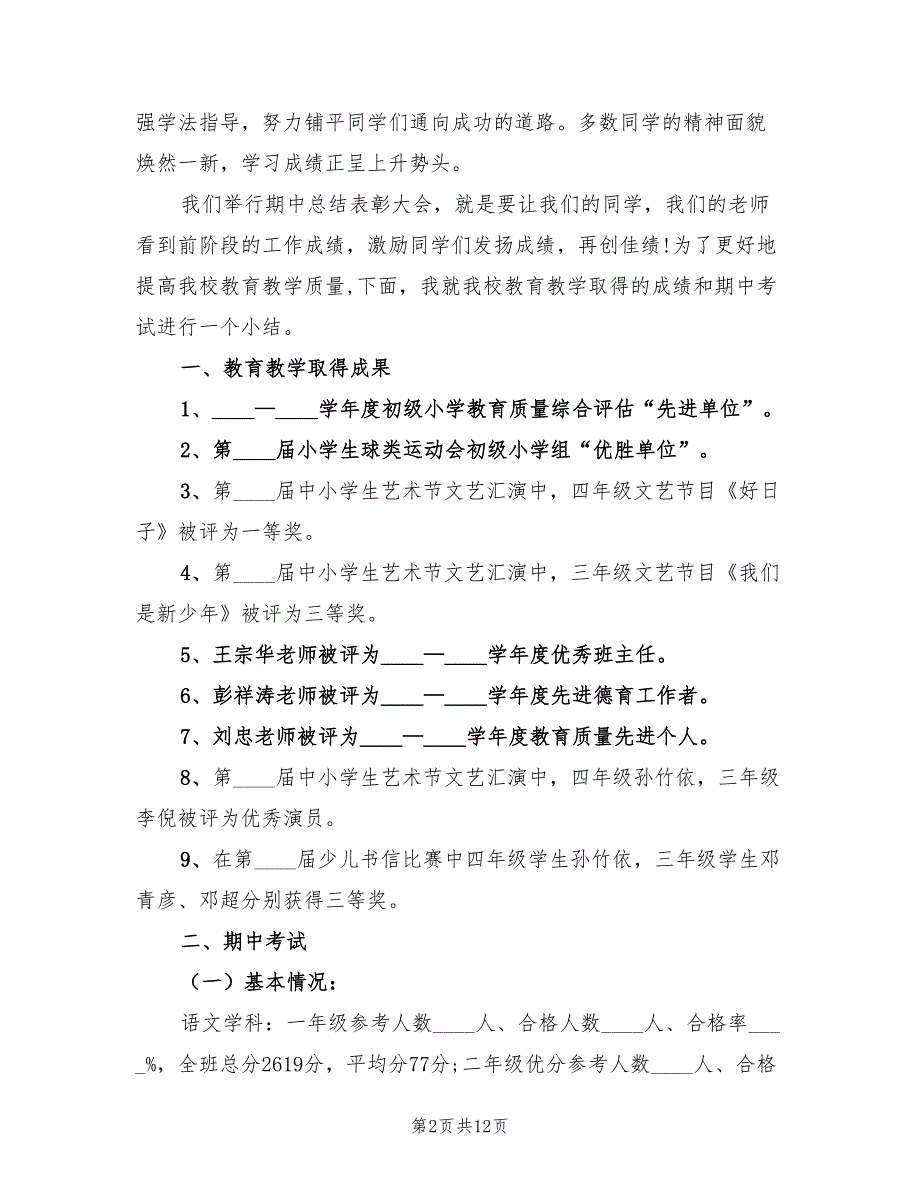 强学法指导，努力铺平同学们通向成功的道路。多数同学的精神面貌
焕然一新，学习成绩正呈上升势头。
我们举行期中总结表彰大会，就是要让我们的同学，我们的老师
看到前阶段的工作成绩，激励同学们发扬成绩，再创佳绩!为了更好地
提高我校教育教学质量,下面，我就我校教育教学取得的成绩和期中考
试进行一个小结。
一、教育教学取得成果
1、____—____学年度初级小学教育质量综合评估“先进单位”。
2、第____届小学生球类运动会初级小学组“优胜单位”。
3、第____届中小学生艺术节文艺汇演中，四年级文艺节目《好日
子》被评为一等奖。
4、第____届中小学生艺术节文艺汇演中，三年级文艺节目《我们
是新少年》被评为三等奖。
5、王宗华老师被评为____—____学年度优秀班主任。
6、彭祥涛老师被评为____—____学年度先进德育工作者。
7、刘忠老师被评为____—____学年度教育质量先进个人。
8、第____届中小学生艺术节文艺汇演中，四年级孙竹依，三年级
李倪被评为优秀演员。
9、在第____届少儿书信比赛中四年级学生孙竹依，三年级学生邓
青彦、邓超分别获得三等奖。
二、期中考试
（一）基本情况：
语文学科：一年级参考人数____人、合格人数____人、合格率___
_%，全班总分2619分，平均分77分;二年级优分参考人数____人、合格
第2页共12页